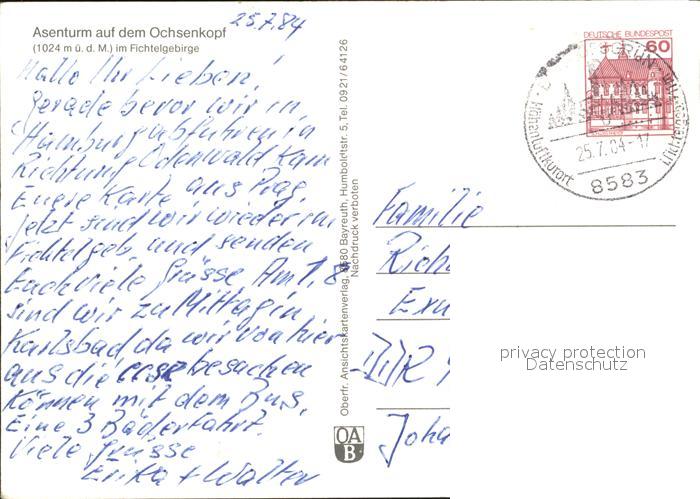 25.7.84
Asenturm auf dem Ochsenkopf
(1024 m ü. d. M.) im Fichtelgebirge
Hallo Ihr Lieben!
Gerade bevor wir in
Hamburg abfuhren in
Richtung Odenwald kam
Eure Karte aus Prag.
Jetzt sind wir wieder im
Fichtelgeb. und senden
Euch viele Grüsse Am 1.8
sind wir zu Mittag in
Karlsbad, da wir von hier
aus die CSSR besuchen
können mit dem Bus.
Eine 3 Bäderfahrt.
Viele Grüsse
Erika + Walter
Oberfr. Ansichtskartenverlag, 8580 Bayreuth, Humboldtstr. 5, Tel. 0921/64126
Nachdruck verboten
OA
B
DEUTSCHE BUNDESPOST
60
25.7.84-17
Höhenluftkurort
8583
Familie
Rich
Exn
DDR
Joha
privacy protection
Datenschutz